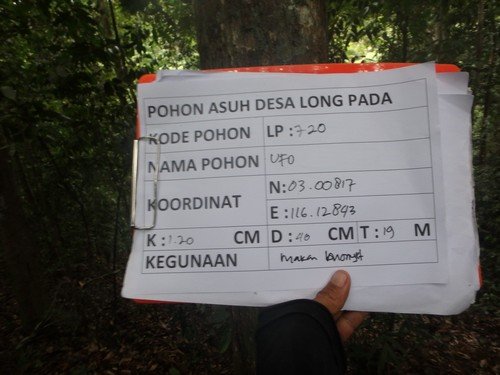 POHON ASUH DESA LONG PADA
KODE POHON LP : 720
NAMA POHON UFO
KOORDINAT N : 03.00817
E : 116.12843
K : 120 CM D : 40 CM T : 19 M
KEGUNAAN makan